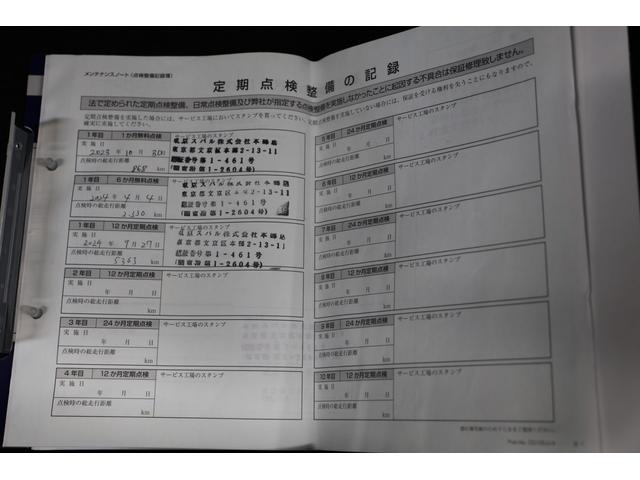 メンテナンスノート(点検整備記録簿)
定期点検整備の記録
法で定められた定期点検整備、日常点検整備及び弊社が指定する点検整備を実施しなかったことに起因する不具合は保証修理致しません。
定期点検整備を実施した場合には、サービス工場においてスタンプを貰ってください。定期点検整備を実施していない場合には、保証を受ける権利を失うこともなりますので、
確実に実施してください。
1年目 1か月無料点検 サービス工場のスタンプ
実施日
2023年10月30日
点検時の総走行距離
868 km
東京スバル株式会社本郷店
東京都文京区本郷2-13-11
認証番号第1-461号
(関東指第1-2604号)
1年目 6か月無料点検 サービス工場のスタンプ
実施日
2024年4月4日
点検時の総走行距離
2,530 km
東京スバル株式会社本郷店
東京都文京区本郷2-13-11
認証番号第1-461号
(関東指第1-2604号)
1年目 12か月定期点検 サービス工場のスタンプ
実施日
2024年9月27日
点検時の総走行距離
5363 km
東京スバル株式会社本郷店
東京都文京区本郷2-13-11
認証番号第1-461号
(関東指第1-2604号)
2年目 12か月定期点検 サービス工場のスタンプ
実施日
年 月 日
点検時の総走行距離
km
3年目 24か月定期点検 サービス工場のスタンプ
実施日
年 月 日
点検時の総走行距離
km
4年目 12か月定期点検 サービス工場のスタンプ
実施日
年 月 日
点検時の総走行距離
km
5年目 24か月定期点検 サービス工場のスタンプ
実施日
年 月 日
点検時の総走行距離
km
6年目 12か月定期点検 サービス工場のスタンプ
実施日
年 月 日
点検時の総走行距離
km
7年目 24か月定期点検 サービス工場のスタンプ
実施日
年 月 日
点検時の総走行距離
km
8年目 12か月定期点検 サービス工場のスタンプ
実施日
年 月 日
点検時の総走行距離
km
9年目 24か月定期点検 サービス工場のスタンプ
実施日
年 月 日
点検時の総走行距離
km
10年目 12か月定期点検 サービス工場のスタンプ
実施日
年 月 日
点検時の総走行距離
km